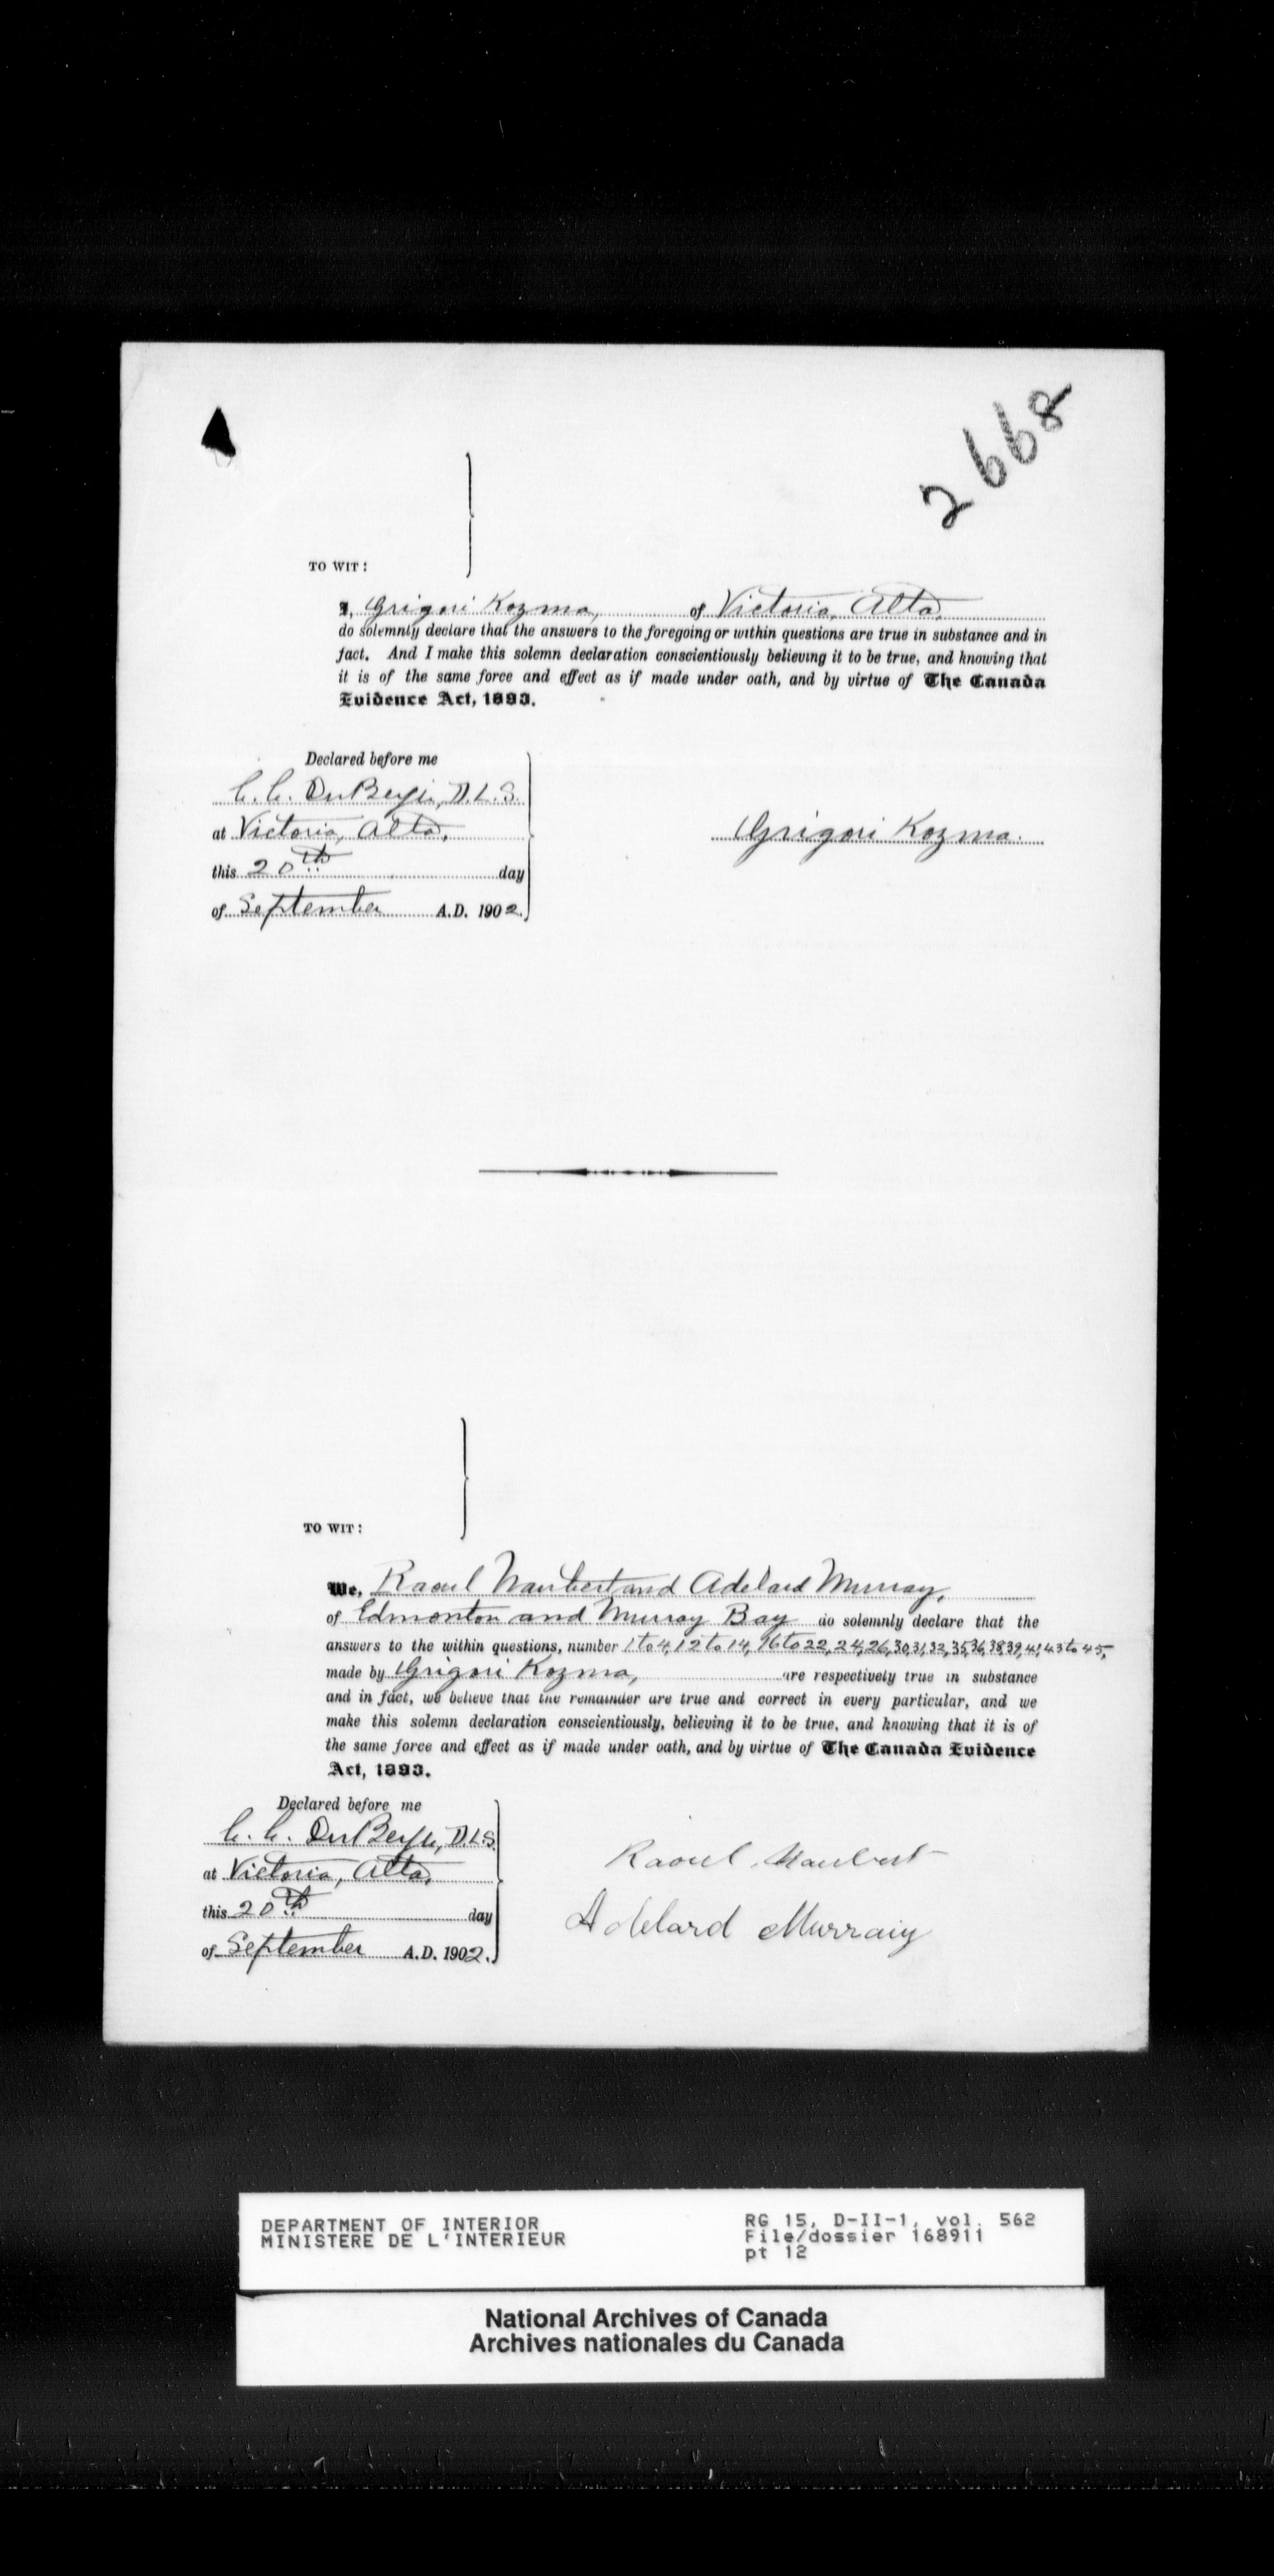 2668
TO WIT:
I, Grigori Kozma, of Victoria, Alta,
do solemnly declare that the answers to the foregoing or within questions are true in substance and in
fact. And I make this solemn declaration conscientiously believing it to be true, and knowing that
it is of the same force and effect as if made under oath, and by virtue of The Canada
Evidence Act, 1893.
Declared before me
C. C. DuBerge, D.L.S.
at Victoria, Alta,
this 20th day
of September A.D. 1902.
Grigori Kozma.
TO WIT:
We, Raoul Naubert and Adelard Murray,
of Edmonton and Murray Bay do solemnly declare that the
answers to the within questions, number 1 to 4, 12 to 14, 16 to 22, 24, 26, 30, 31, 32, 35, 36, 38, 39, 41, 43 to 45,
made by Grigori Kozma, are respectively true in substance
and in fact, we believe that the remainder are true and correct in every particular, and we
make this solemn declaration conscientiously, believing it to be true, and knowing that it is of
the same force and effect as if made under oath, and by virtue of The Canada Evidence
Act, 1893.
Declared before me
C. C. DuBerge, D.L.S.
at Victoria, Alta,
this 20th day
of September A.D. 1902.
Raoul Naubert
Adelard Murraiy
DEPARTMENT OF INTERIOR
MINISTERE DE L'INTERIEUR
RG 15, D-II-1, vol. 562
File/dossier 168911
pt 12
National Archives of Canada
Archives nationales du Canada